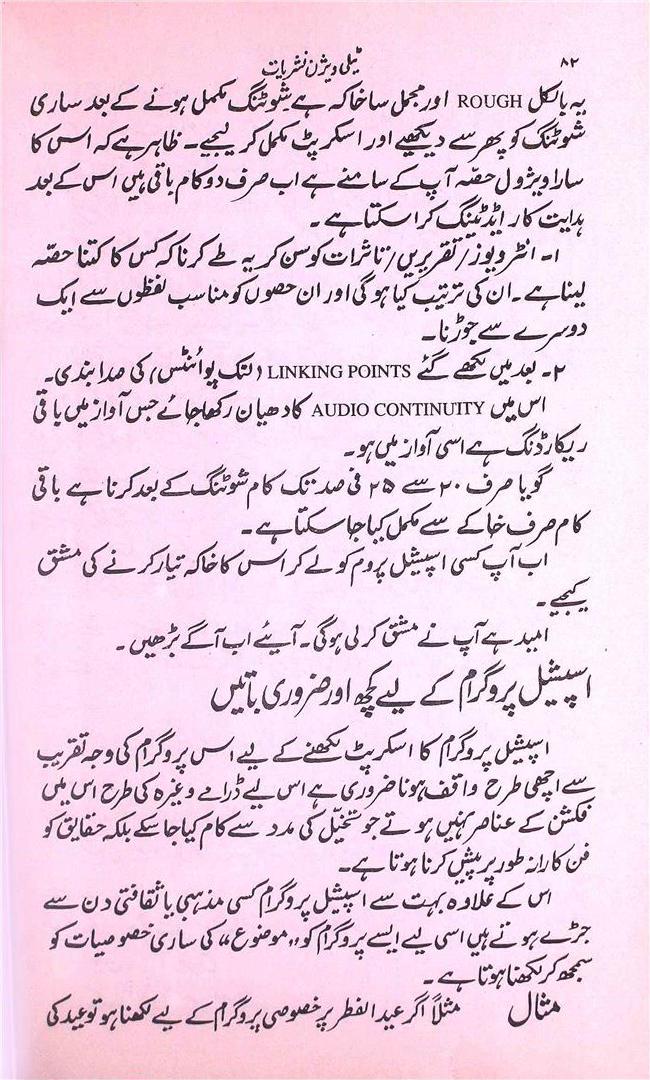 ۸۲
ٹیلی ویژن نشریات
یہ بالکل ROUGH اور مجمل سا خاکہ ہے شوٹنگ مکمل ہونے کے بعد ساری
شوٹنگ کو پھر سے دیکھیے اور اسکرپٹ مکمل کر لیجیے۔ ظاہر ہے کہ اس کا
سارا ویژول حصّہ آپ کے سامنے ہے اب صرف دو کام باقی ہیں اس کے بعد
ہدایت کار ایڈیٹنگ کرا سکتا ہے۔
۱۔ انٹرویوز/تقریریں/تاثرات کو سن کر یہ طے کرنا کہ کس کا کتنا حصّہ
لینا ہے۔ ان کی ترتیب کیا ہو گی اور ان حصوں کو مناسب لفظوں سے ایک
دوسرے سے جوڑنا۔
۲۔ بعد میں لکھے گئے LINKING POINTS (لنک پوائنٹس) کی صدا بندی۔
اس میں AUDIO CONTINUITY کا دھیان رکھا جائے جس آواز میں باقی
ریکارڈنگ ہے اسی آواز میں ہو۔
گویا صرف ۲۰ سے ۲۵ فی صد تک کام شوٹنگ کے بعد کرنا ہے باقی
کام صرف خاکے سے مکمل کیا جا سکتا ہے۔
اب آپ کسی اسپیشل پروم کو لے کر اس کا خاکہ تیار کرنے کی مشق
کیجیے۔
امید ہے آپ نے مشق کر لی ہوگی۔ آیئے اب آگے بڑھیں۔
اسپیشل پروگرام کے لیے کچھ اور ضروری باتیں
اسپیشل پروگرام کا اسکرپٹ لکھنے کے لیے اس پروگرام کی وجہ تقریب
سے اچھی طرح واقف ہونا ضروری ہے اس لیے ڈرامے وغیرہ کی طرح اس میں
فکشن کے عناصر نہیں ہوتے جو تخیّل کی مدد سے کام کیا جا سکے بلکہ حقایق کو
فن کارانہ طور پر پیش کرنا ہوتا ہے۔
اس کے علاوہ بہت سے اسپیشل پروگرام کسی مذہبی یا ثقافتی دن سے
جڑے ہوتے ہیں اسی لیے ایسے پروگرام کو "موضوع" کی ساری خصوصیات کو
سمجھ کر لکھنا ہوتا ہے۔
مثال مثلاً اگر عید الفطر پر خصوصی پروگرام کے لیے لکھنا ہو تو عید کی